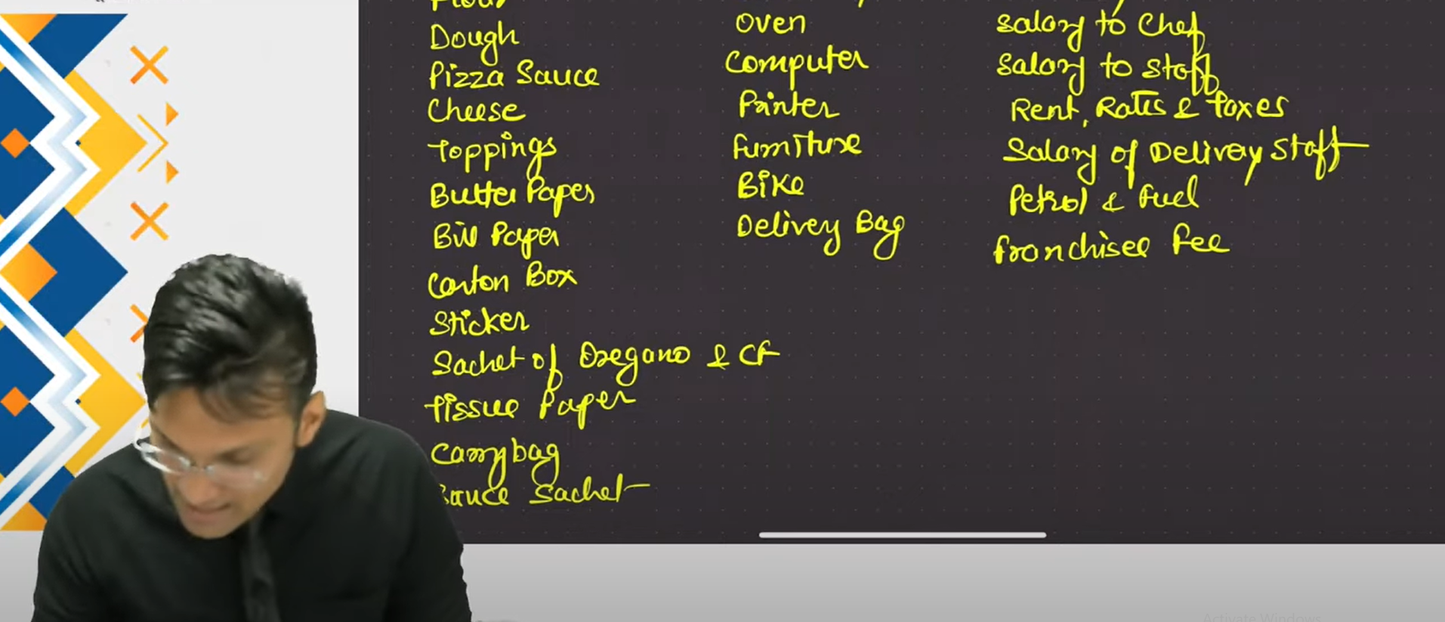 Flour
Dough
Pizza Sauce
Cheese
Toppings
Butter Paper
Bill Paper
Carton Box
Sticker
Sachet of Oregano & CF
Tissue Paper
Carry bag
Sauce Sachet
Oven
Computer
Printer
Furniture
Bike
Delivery Bag
Salary to Chef
Salary to Staff
Rent, Rates & Taxes
Salary of Delivery Staff
Petrol & Fuel
Franchisee Fee
Activate Windows